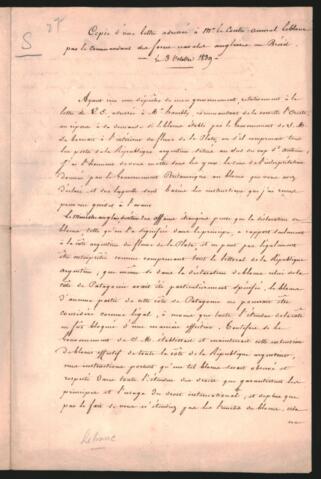 S 27
Copie d'une lettre adressée à Mr. le Contre-amiral Leblanc
par le Commandant des forces navales anglaises au Brésil
le 3 Octobre 1839
Ayant reçu une dépêche de mon gouvernement, relativement à la
lettre de V. E. adressée à Mr. commandant de la corvette l'
en réponse à sa demande si le blocus établi par le Gouvernement de S. M.
se bornait à l'intérieur du fleuve de la Plata, ou s'il comprenait tous
les ports de la République argentine situés au sud du cap St. Antoine,
J'ai l'honneur de vous mettre sous les yeux le sens de l'interprétation
donnée par le Gouvernement Britannique au blocus que vous avez
déclaré, et sur laquelle sont basées les instructions que j'ai reçues
pour me guider à l'avenir.
Le ministre anglais des affaires étrangères pense que la déclaration du
blocus, telle qu'on l'a signifiée dans le principe, a rapport seulement
à la côte argentine du fleuve de la Plata, et ne peut pas légalement
être interprétée comme comprenant tout le littoral de la République
Argentine; que même si dans la déclaration de blocus celui de la
côte de Patagonie avait été particulièrement spécifié, le blocus
d'aucune partie de cette côte de Patagonie ne pourrait être
considéré comme légal, à moins que toute l'étendue de la côte
ne fût bloquée d'une manière effective. Toutefois si le
Gouvernement de S. M. établissait et maintenait cette extension
de blocus effectif de toute la côte de la République argentine,
mes instructions portent qu'un tel blocus serait observé et
respecté dans toute l'étendue des droits que garantissent les
principes et l'usage du droit international, et
par le fait de vous s'étendre que les limites du blocus,
Leblanc